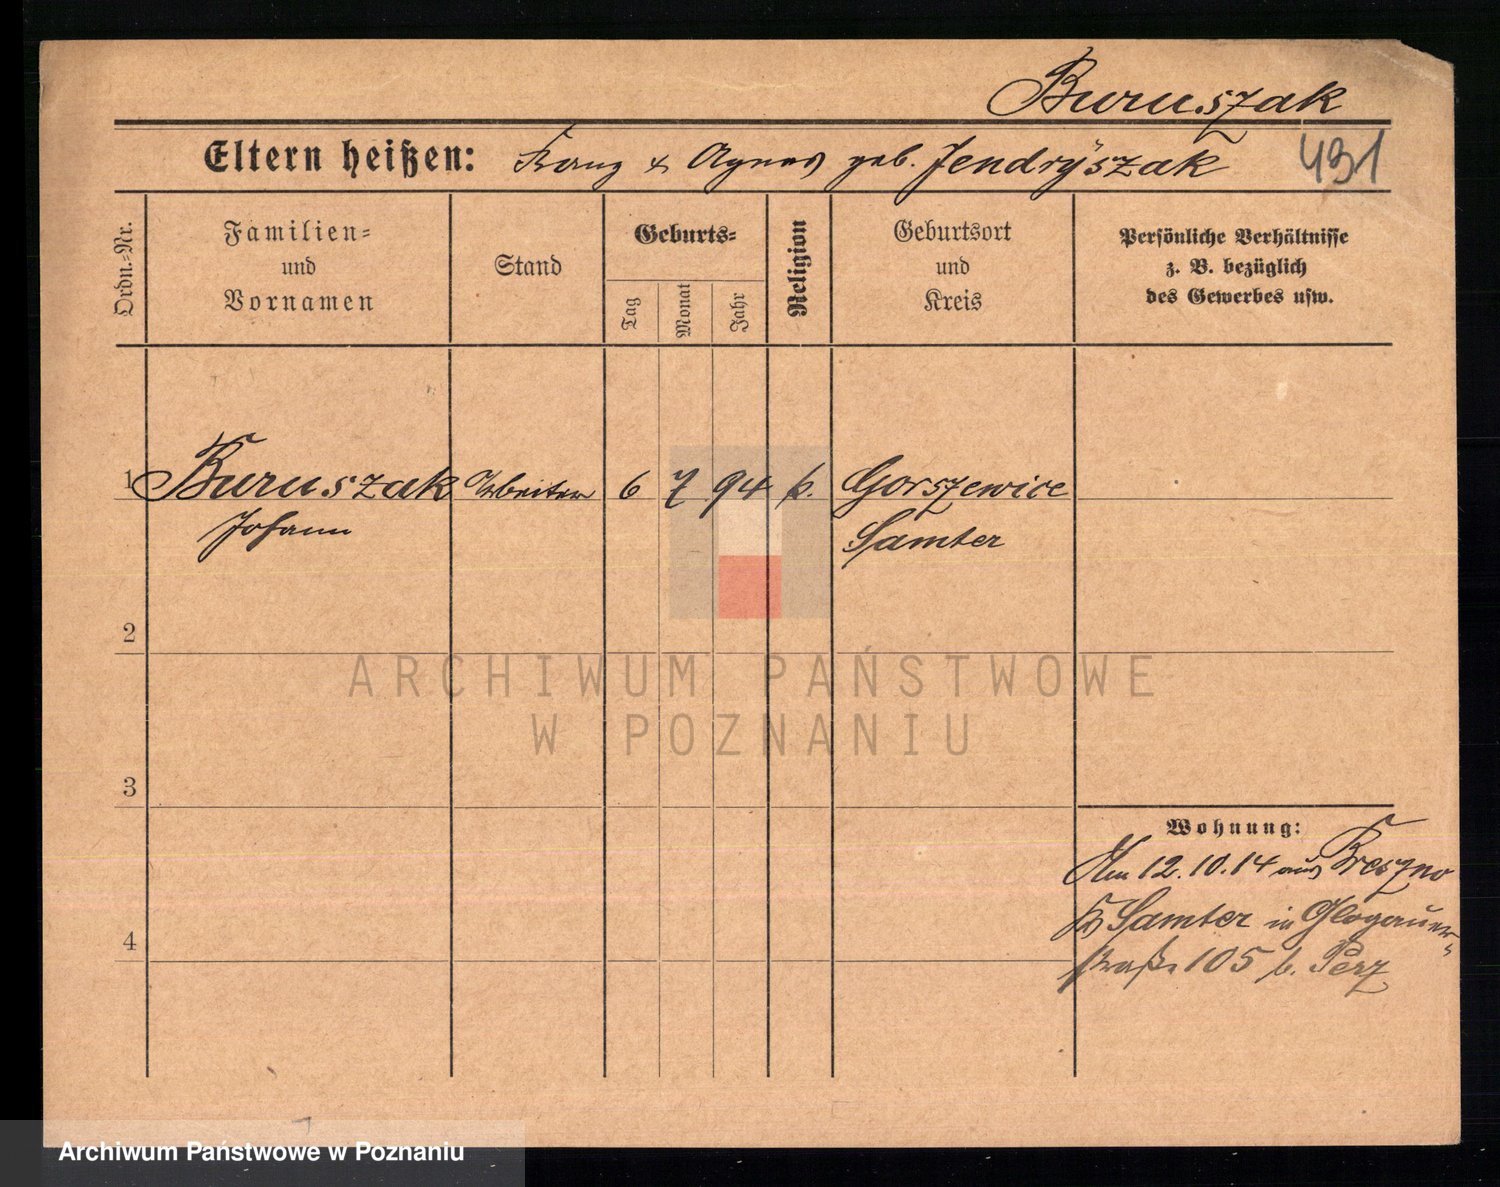 Buruszak
Eltern heißen: Franz & Agnes geb. Jendryszak
431
Ordn.-Nr.
Familien-
und
Vornamen
Stand
Geburts-
Tag
Monat
Jahr
Religion
Geburtsort
und
Kreis
Persönliche Verhältnisse
z. B. bezüglich
des Gewerbes usw.
1 Buruszak Arbeiter 6 7 94 k. Gorszewice
Johann Samter
2
ARCHIWUM PAŃSTWOWE
W POZNANIU
3
Wohnung:
Am 12.10.14 aus
Samter in Glogauer-
4
straße 105 b.
Archiwum Państwowe w Poznaniu